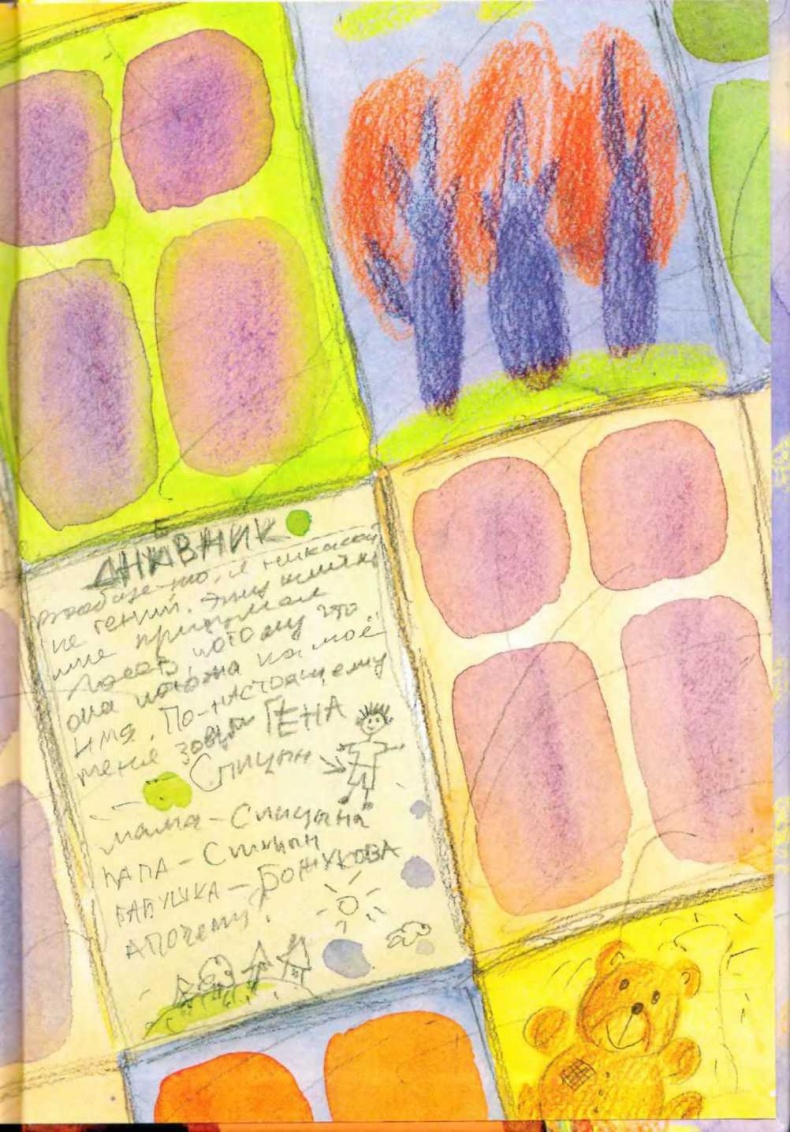 ДНЕВНИК
Вообще-то, я никакой
не гений. Эту
мне придумал
потому что
она похожа на моё
имя. По-настоящему
меня зовут ГЕНА
Спицын
мама – Спицына
ПАПА – Спицын
БАБУШКА – БОЖУКОВА
А ПОЧЕМУ?